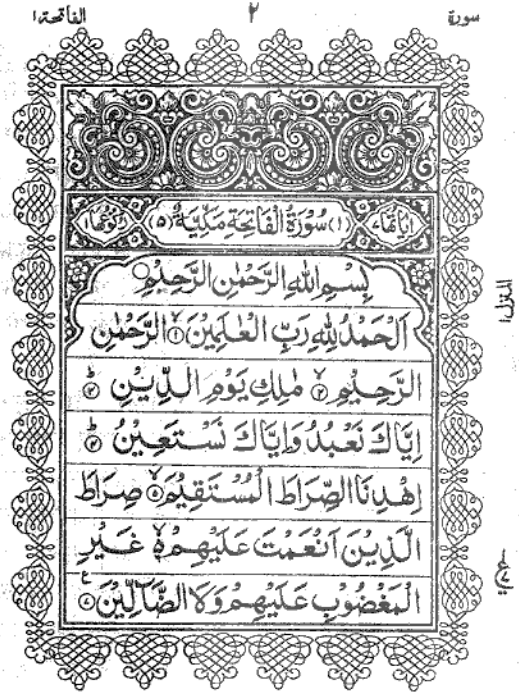 سورة ٢ الفاتحة ١
اٰیاتها ٧ (١) سُوْرَةُ الْفَاتِحَةِ مَكِّيَّةٌ (٥) ركوعها ١
بِسْمِ اللهِ الرَّحْمٰنِ الرَّحِيْمِ
اَلْحَمْدُ لِلّٰهِ رَبِّ الْعٰلَمِيْنَ ۙ﴿١﴾ الرَّحْمٰنِ
الرَّحِيْمِ ۙ﴿٢﴾ مٰلِكِ يَوْمِ الدِّيْنِ ؕ﴿٣﴾
اِيَّاكَ نَعْبُدُ وَاِيَّاكَ نَسْتَعِيْنُ ؕ﴿٤﴾
اِهْدِنَا الصِّرَاطَ الْمُسْتَقِيْمَ ۙ﴿٥﴾ صِرَاطَ
الَّذِيْنَ اَنْعَمْتَ عَلَيْهِمْ ۙ۬ غَيْرِ
الْمَغْضُوْبِ عَلَيْهِمْ وَلَا الضَّآلِّيْنَ ۧ﴿٧﴾
المنزل ١